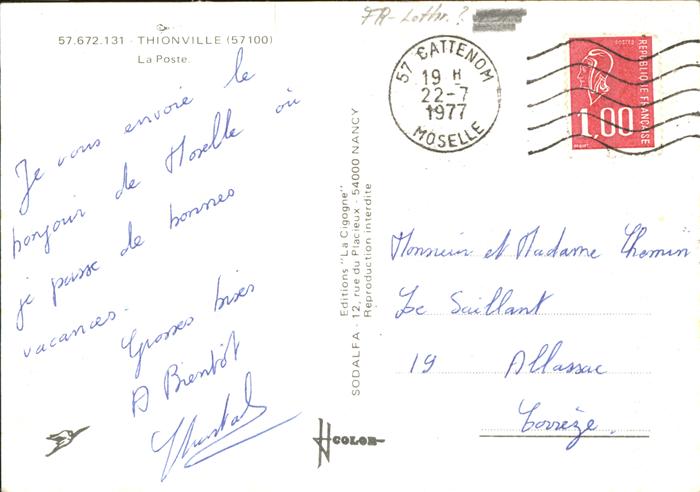 FR - Lothr. ?
57.672.131 - THIONVILLE (57100)
La Poste.
Je vous envoie le
bonjour de Moselle où
je passe de bonnes
vacances.
Grosses bises
A Bientôt
Editions "La Cigogne"
SODALFA - 12, rue du Placieux - 54000 NANCY
Reproduction interdite
COLOR
57 CATTENOM
19 H
22-7
1977
MOSELLE
POSTES
REPUBLIQUE FRANÇAISE
1,00
Monsieur et Madame Chemin
Le Saillant
19 Allassac
Corrèze.